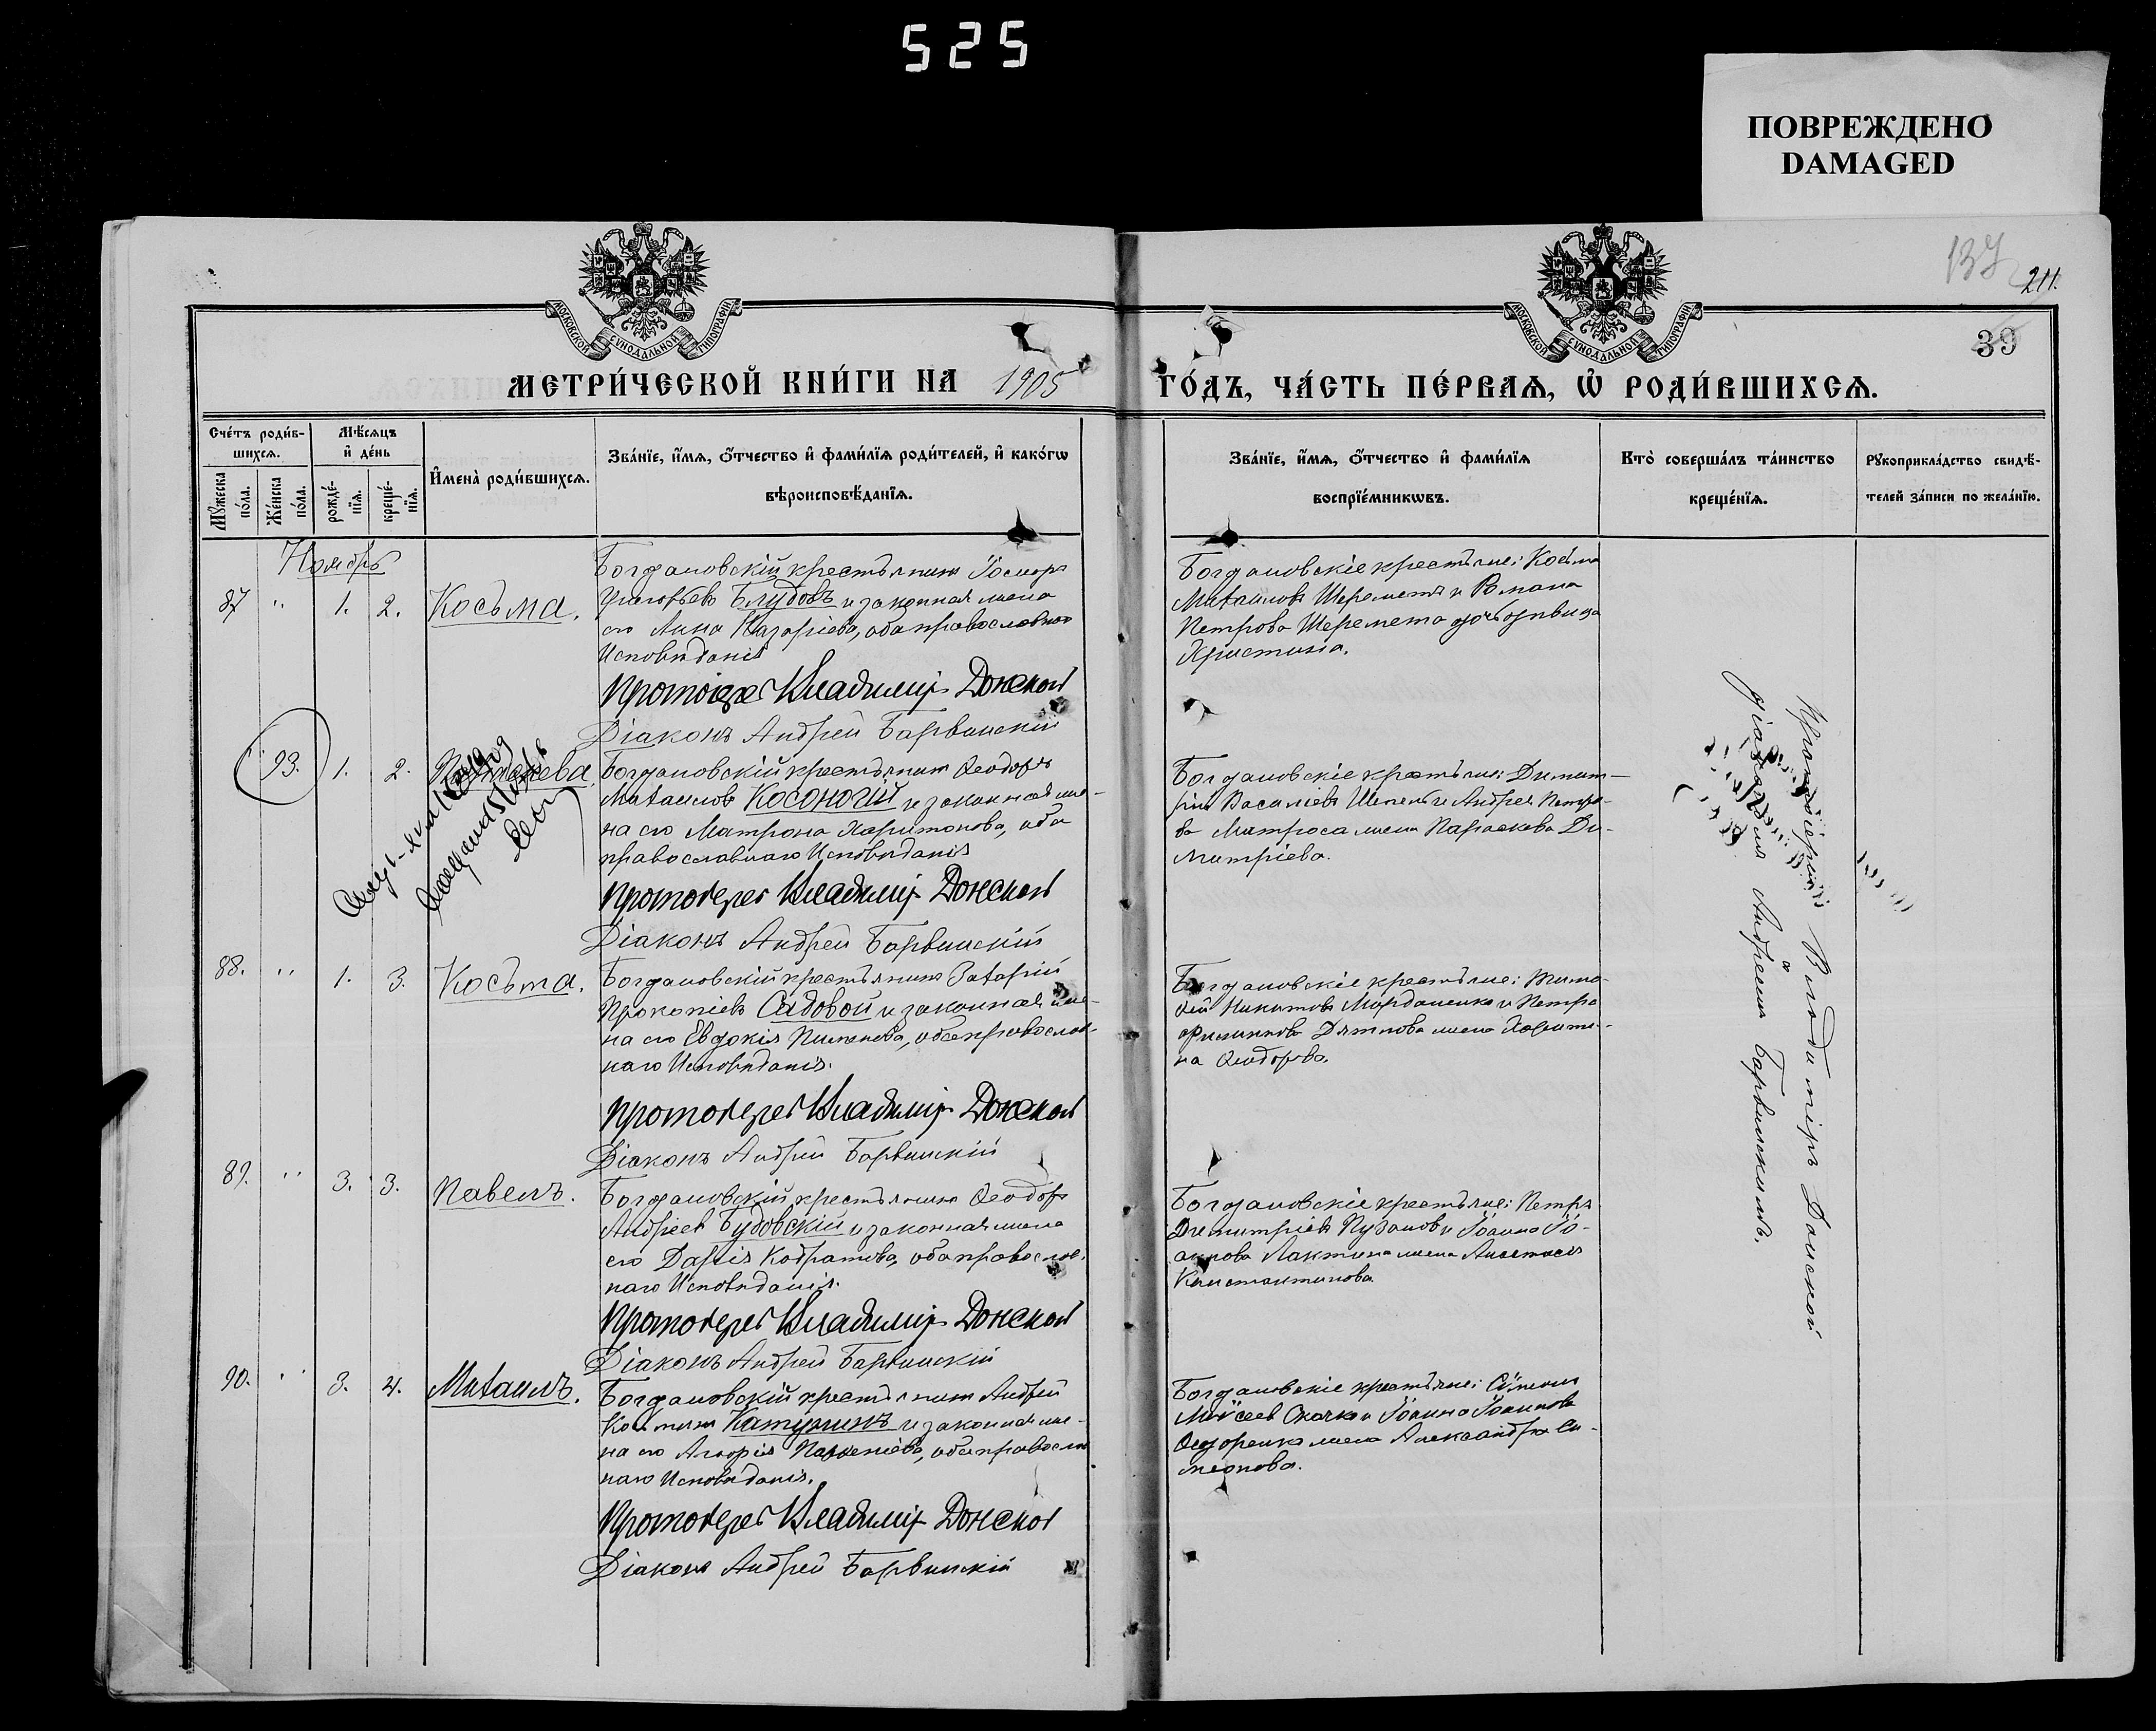 525
ПОВРЕЖДЕНО
DAMAGED
137
211.
39
МОСКОВСКОЙ СѴНОДАЛЬНОЙ ТИПОГРАФІИ
МОСКОВСКОЙ СѴНОДАЛЬНОЙ ТИПОГРАФІИ
МЕТРИ́ЧЕСКОЙ КНИ́ГИ НА 1905 ГО́ДЪ, ЧА́СТЬ ПЕ́РВАѦ, Ѡ҆ РОДИ́ВШИХСѦ.
Сче́тъ роди́в-
шихсѧ.
Мꙋ́жеска по́ла.
Же́нска по́ла.
Мѣ́сѧцъ
и҆ де́нь
рожде́-
нїѧ.
креще́-
нїѧ.
И҆мена̀ роди́вшихсѧ.
Зва́нїе, и҆́мѧ, ѻ҆́тчество и҆ фами́лїѧ роди́телей, и҆ како́гѡ
вѣроисповѣ́данїѧ.
Зва́нїе, и҆́мѧ, ѻ҆́тчество и҆ фами́лїѧ
воспрїе́мникѡвъ.
Кто̀ соверша́лъ та́инство
креще́нїѧ.
Рꙋкоприкла́дство свидѣ́-
телей за́писи по жела́нїю.
Ноябрь
87 " 1. 2. Косьма.
Богдановскій крестьянинъ
Григорьевъ Блудовъ и законная жена
его Анна Назаріева, оба православнаго
Исповѣданія
Протоіерей Владимиръ Донской
Діаконъ Андрей Барвинскій
Богдановскіе крестьяне: Косьма
Михаиловъ Шереметъ и Романа
Петрова Шеремета дочь дѣвица
Христина.
93. 1. 2.
Богдановскій крестьянинъ Ѳеодоръ
Михаиловъ Косоногій и законная же-
на его Матрона Харитонова, оба
православнаго Исповѣданія
Протоіерей Владимиръ Донской
Діаконъ Андрей Барвинскій
Богдановскіе крестьяне: Димит-
рій Василіевъ и Андрея Петро-
ва Матроса жена Параскева Ди-
митріева.
88. " 1. 3. Косьма.
Богдановскій крестьянинъ Захарій
Прокопіевъ Садовой и законная же-
на его Евдокія Пименова, оба православ-
наго Исповѣданія.
Протоіерей Владимиръ Донской
Діаконъ Андрей Барвинскій
Богдановскіе крестьяне: Тимо-
ѳей Никитовъ Марданенко и Петра
Филиппова Дятлова жена Харити-
на Ѳеодорова.
89. " 3. 3. Павелъ.
Богдановскій крестьянинъ Ѳеодоръ
Андреевъ Будовскій и законная жена
его Дарія Кодратова, оба православ-
наго Исповѣданія.
Протоіерей Владимиръ Донской
Діаконъ Андрей Барвинскій
Богдановскіе крестьяне: Петръ
Димитріевъ Пузановъ и Іоанна Іо-
аннова Лактина жена Анастасія
Константинова
90. " 3. 4. Михаилъ.
Богдановскій крестьянинъ Андрей
Косминъ Катунинъ и законная же-
на его Агафія Парѳеніева, оба православ
наго Исповѣданія.
Протоіерей Владимиръ Донской
Діаконъ Андрей Барвинскій
Богдановскіе крестьяне: Сѵмеонъ
Моѵсеевъ Скачко и Іоанна Іоаннова
Ѳедоренка жена Александра Си-
меонова.
Протоіерей Владиміръ Донской
Андреемъ Барвинскимъ.